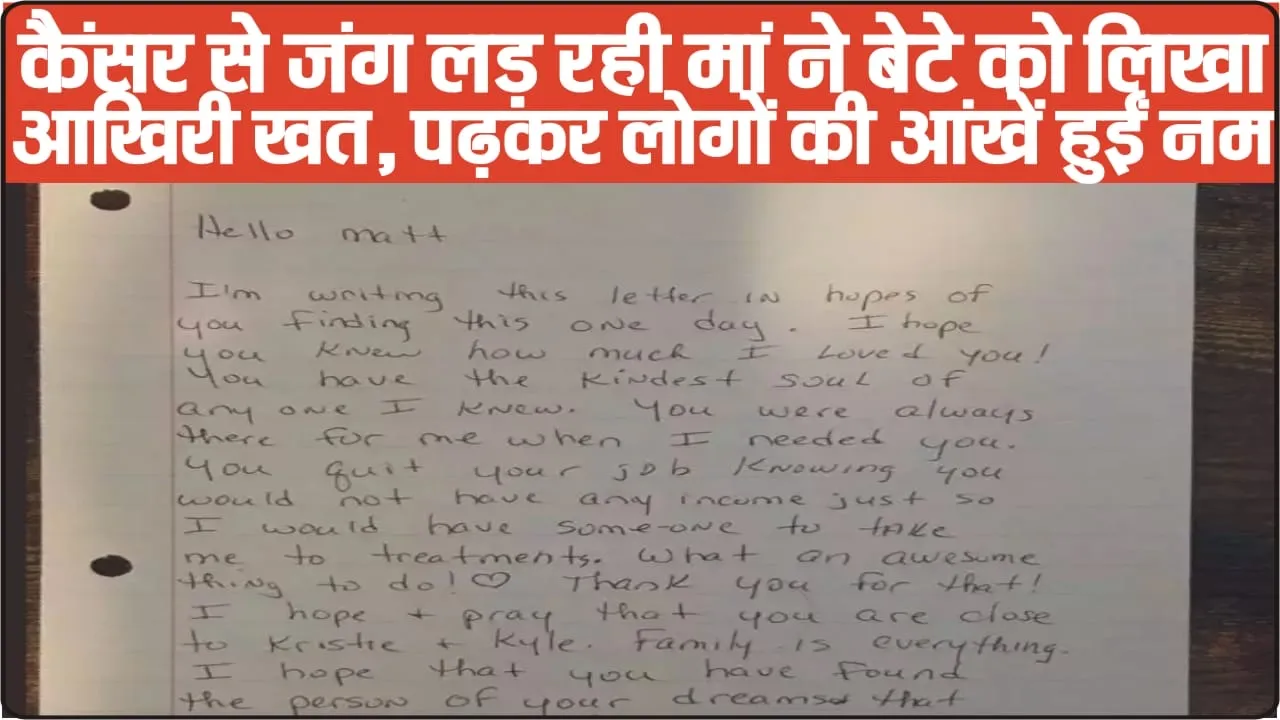 कैंसर से जंग लड़ रही मां ने बेटे को लिखा
आखिरी खत, पढ़कर लोगों की आंखें हुईं नम
Hello matt
I'm writing this letter in hopes of
you finding this one day. I hope
you knew how much I loved you!
You have the kindest soul of
any one I knew. You were always
there for me when I needed you.
You quit your job knowing you
would not have any income just so
I would have some-one to take
me to treatments. What an awesome
thing to do! ♡ Thank you for that!
I hope + pray that you are close
to Kristie + Kyle. Family is everything.
I hope that you have found
the person of your dreams that